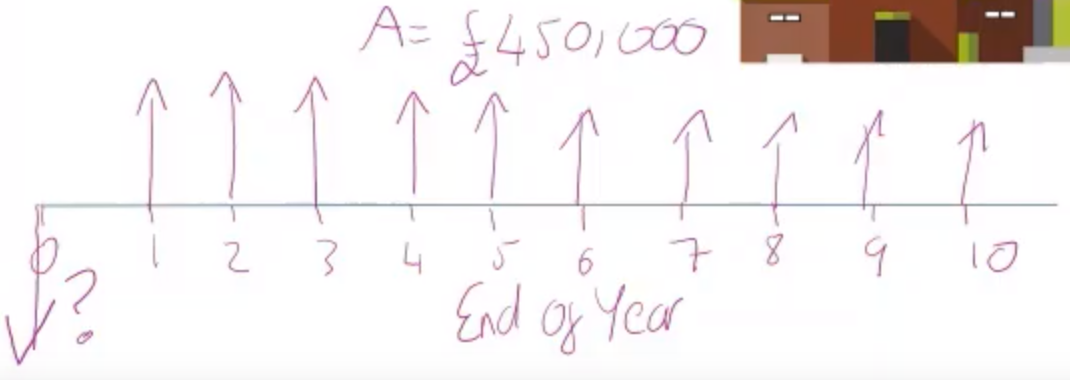 A= £450,000
0 1 2 3 4 5 6 7 8 9 10
?
End of Year